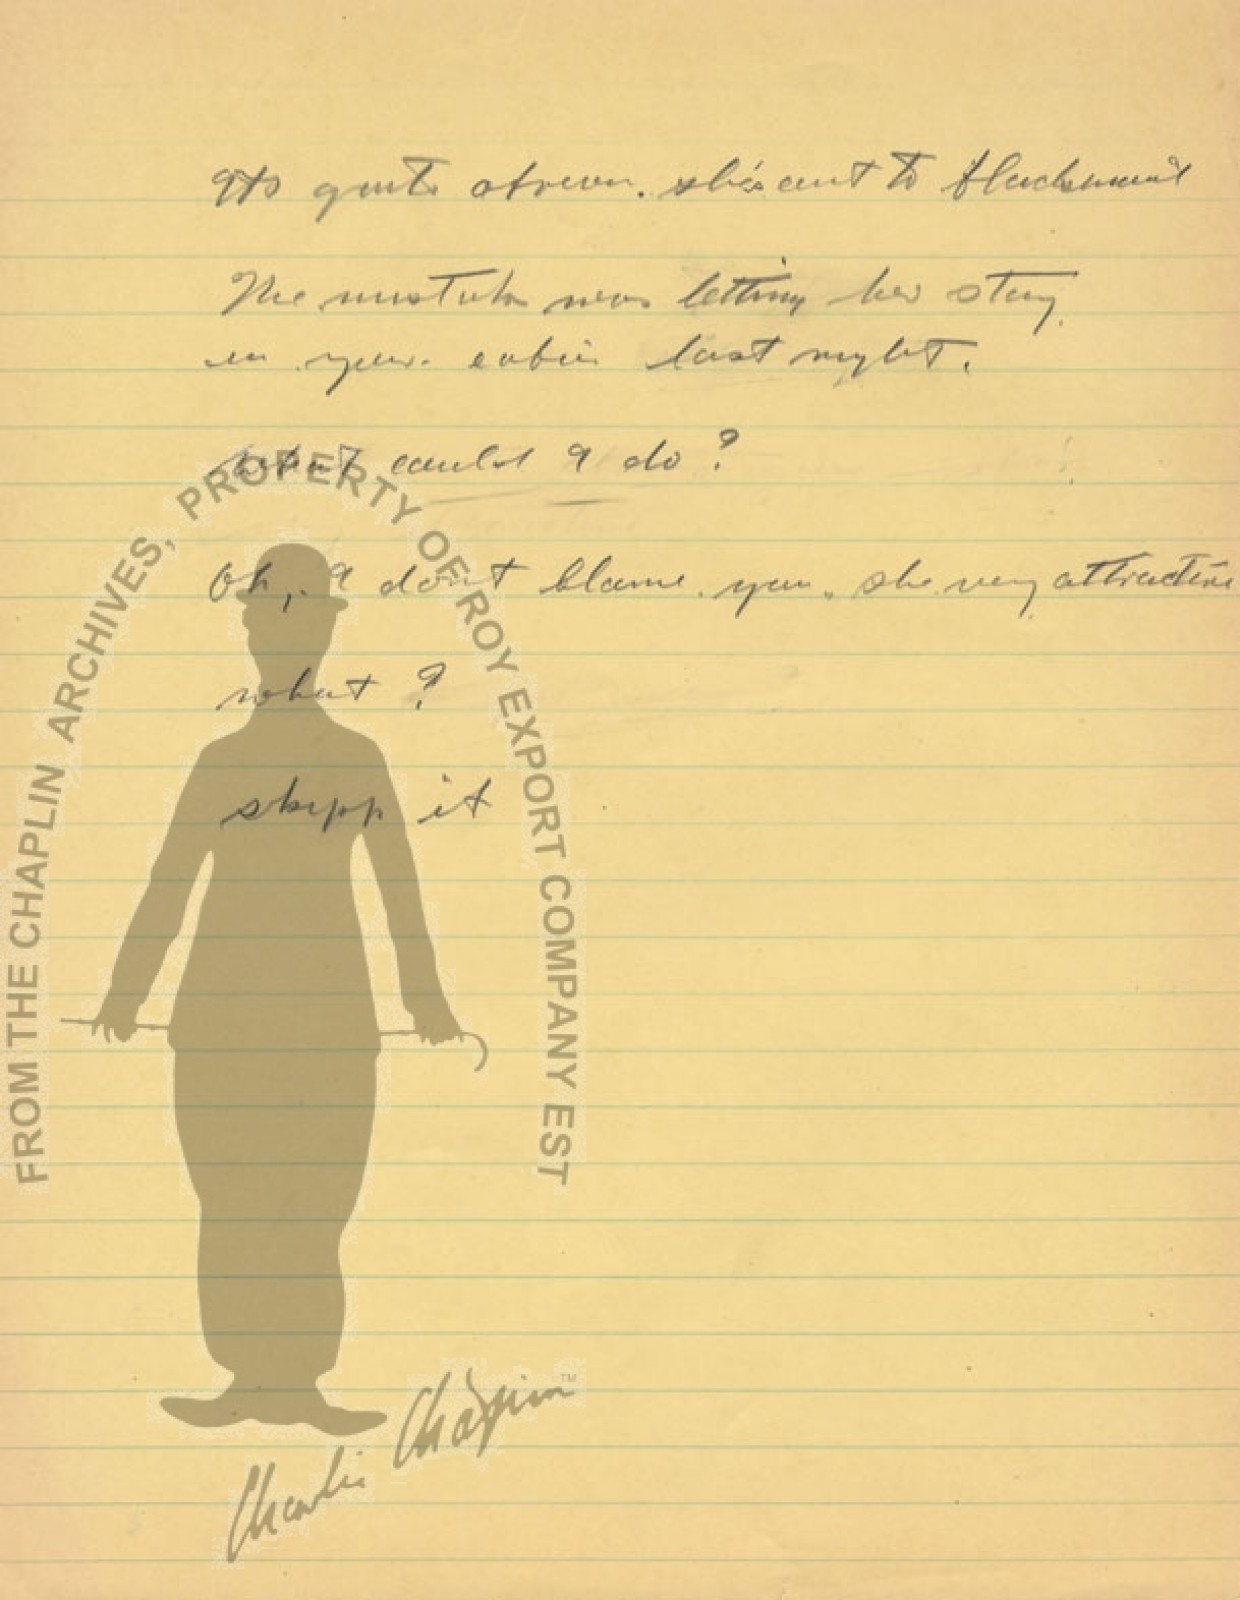 Its quite obvious. she's out to blackmail
The mistake was letting her stay
in your cabin last night.
what could I do?
Oh, I don't blame you. she very attractive
what?
skipp it
FROM THE CHAPLIN ARCHIVES, PROPERTY OF ROY EXPORT COMPANY EST
Charlie Chaplin TM